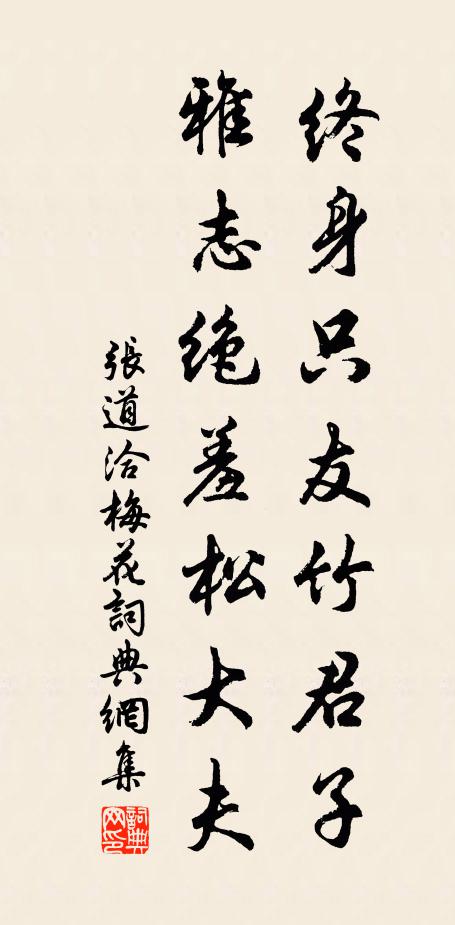 终身只友竹君子
雅志绝羞松大夫
張道洽梅花詞典網集
詞典網印